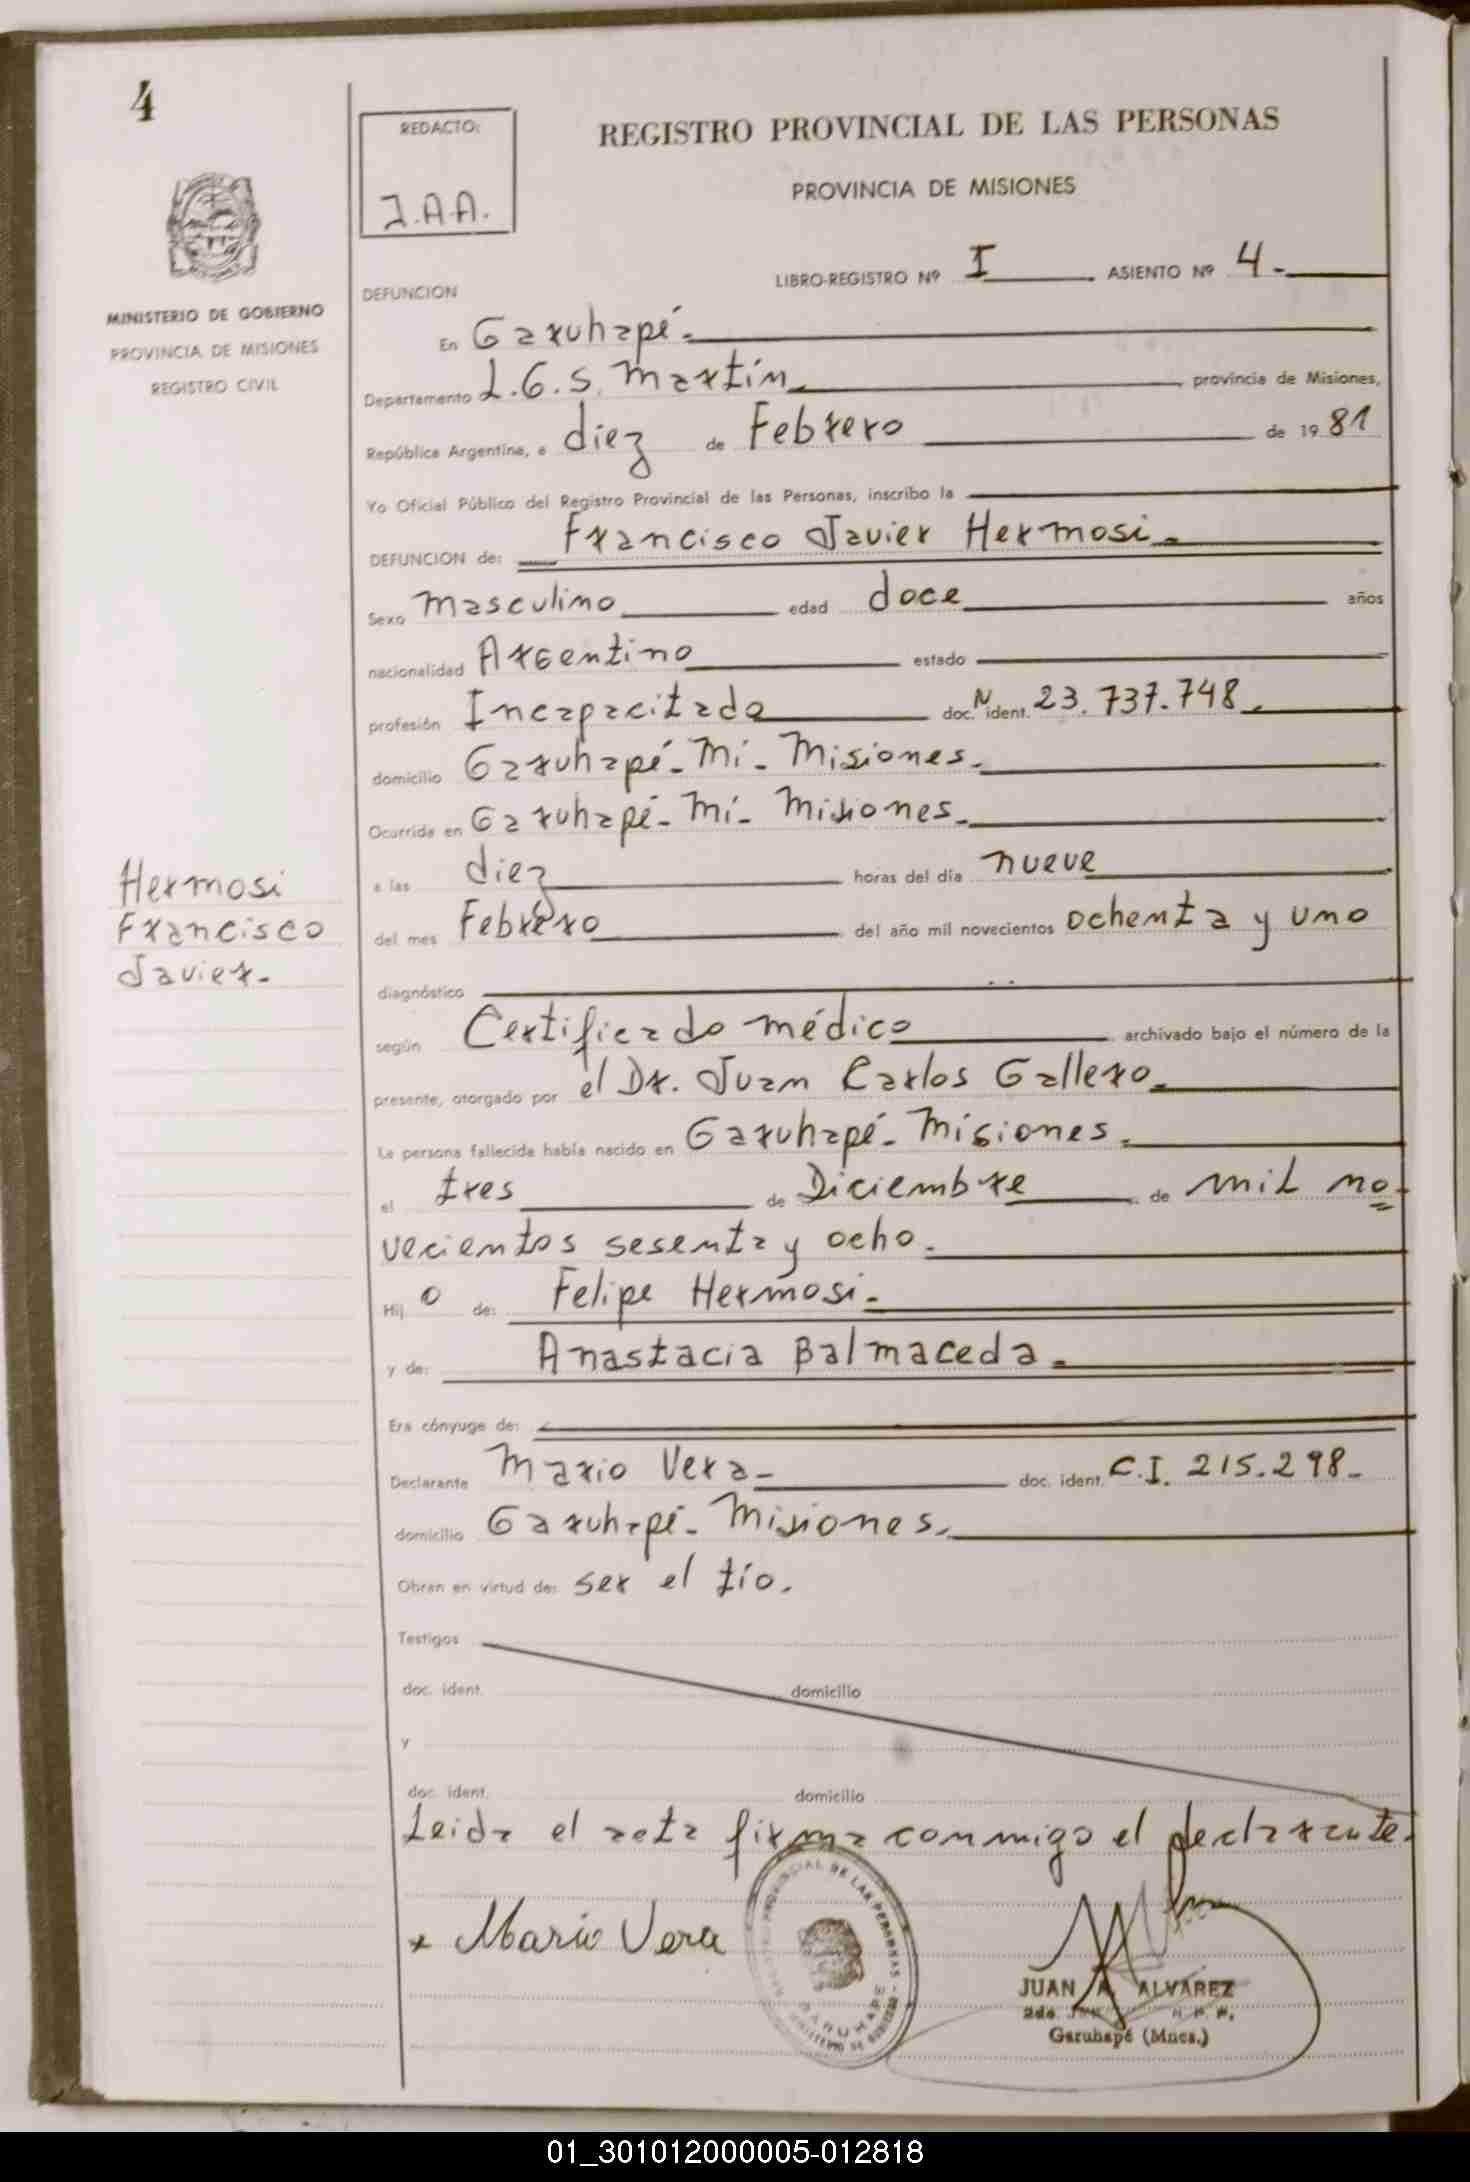 4
REDACTO:
J.A.A.
REGISTRO PROVINCIAL DE LAS PERSONAS
PROVINCIA DE MISIONES
LIBRO-REGISTRO Nº I ASIENTO Nº 4.-
MINISTERIO DE GOBIERNO
PROVINCIA DE MISIONES
REGISTRO CIVIL
DEFUNCION
En Garuhapé.
Departamento L.G.S. Martín provincia de Misiones,
República Argentina, a diez de Febrero de 1981
Yo Oficial Público del Registro Provincial de las Personas, inscribo la
DEFUNCION de: Francisco Javier Hermosi.
Sexo masculino edad doce años
nacionalidad Argentino estado
profesión Incapacitado doc. N ident. 23.737.748.
domicilio Garuhapé - Mí - Misiones.
Ocurrida en Garuhapé - Mí - Misiones.
a las diez horas del día nueve
del mes Febrero del año mil novecientos ochenta y uno
Hermosi
Francisco
Javier.-
diagnóstico
según Certificado médico archivado bajo el número de la
presente, otorgado por el Dr. Juan Carlos Gallero.
La persona fallecida había nacido en Garuhapé - Misiones.
el tres de Diciembre de mil no
vecientos sesenta y ocho.
Hij o de: Felipe Hermosi.
y de: Anastacia Balmaceda.
Era cónyuge de:
Declarante Mario Vera - doc. ident. C.I. 215.298-
domicilio Garuhapé - Misiones.
Obran en virtud de: ser el tío.
Testigos
doc. ident. domicilio
y
doc. ident. domicilio
Leida el acta firma conmigo el declarante.
x Mario Vera
PROVINCIAL DE LAS PERSONAS
GARUHAPE
MINISTERIO DE GOBIERNO
JUAN A. ALVAREZ
2do. R. P. P.
Garuhapé (Mnes.)
01_301012000005-012818